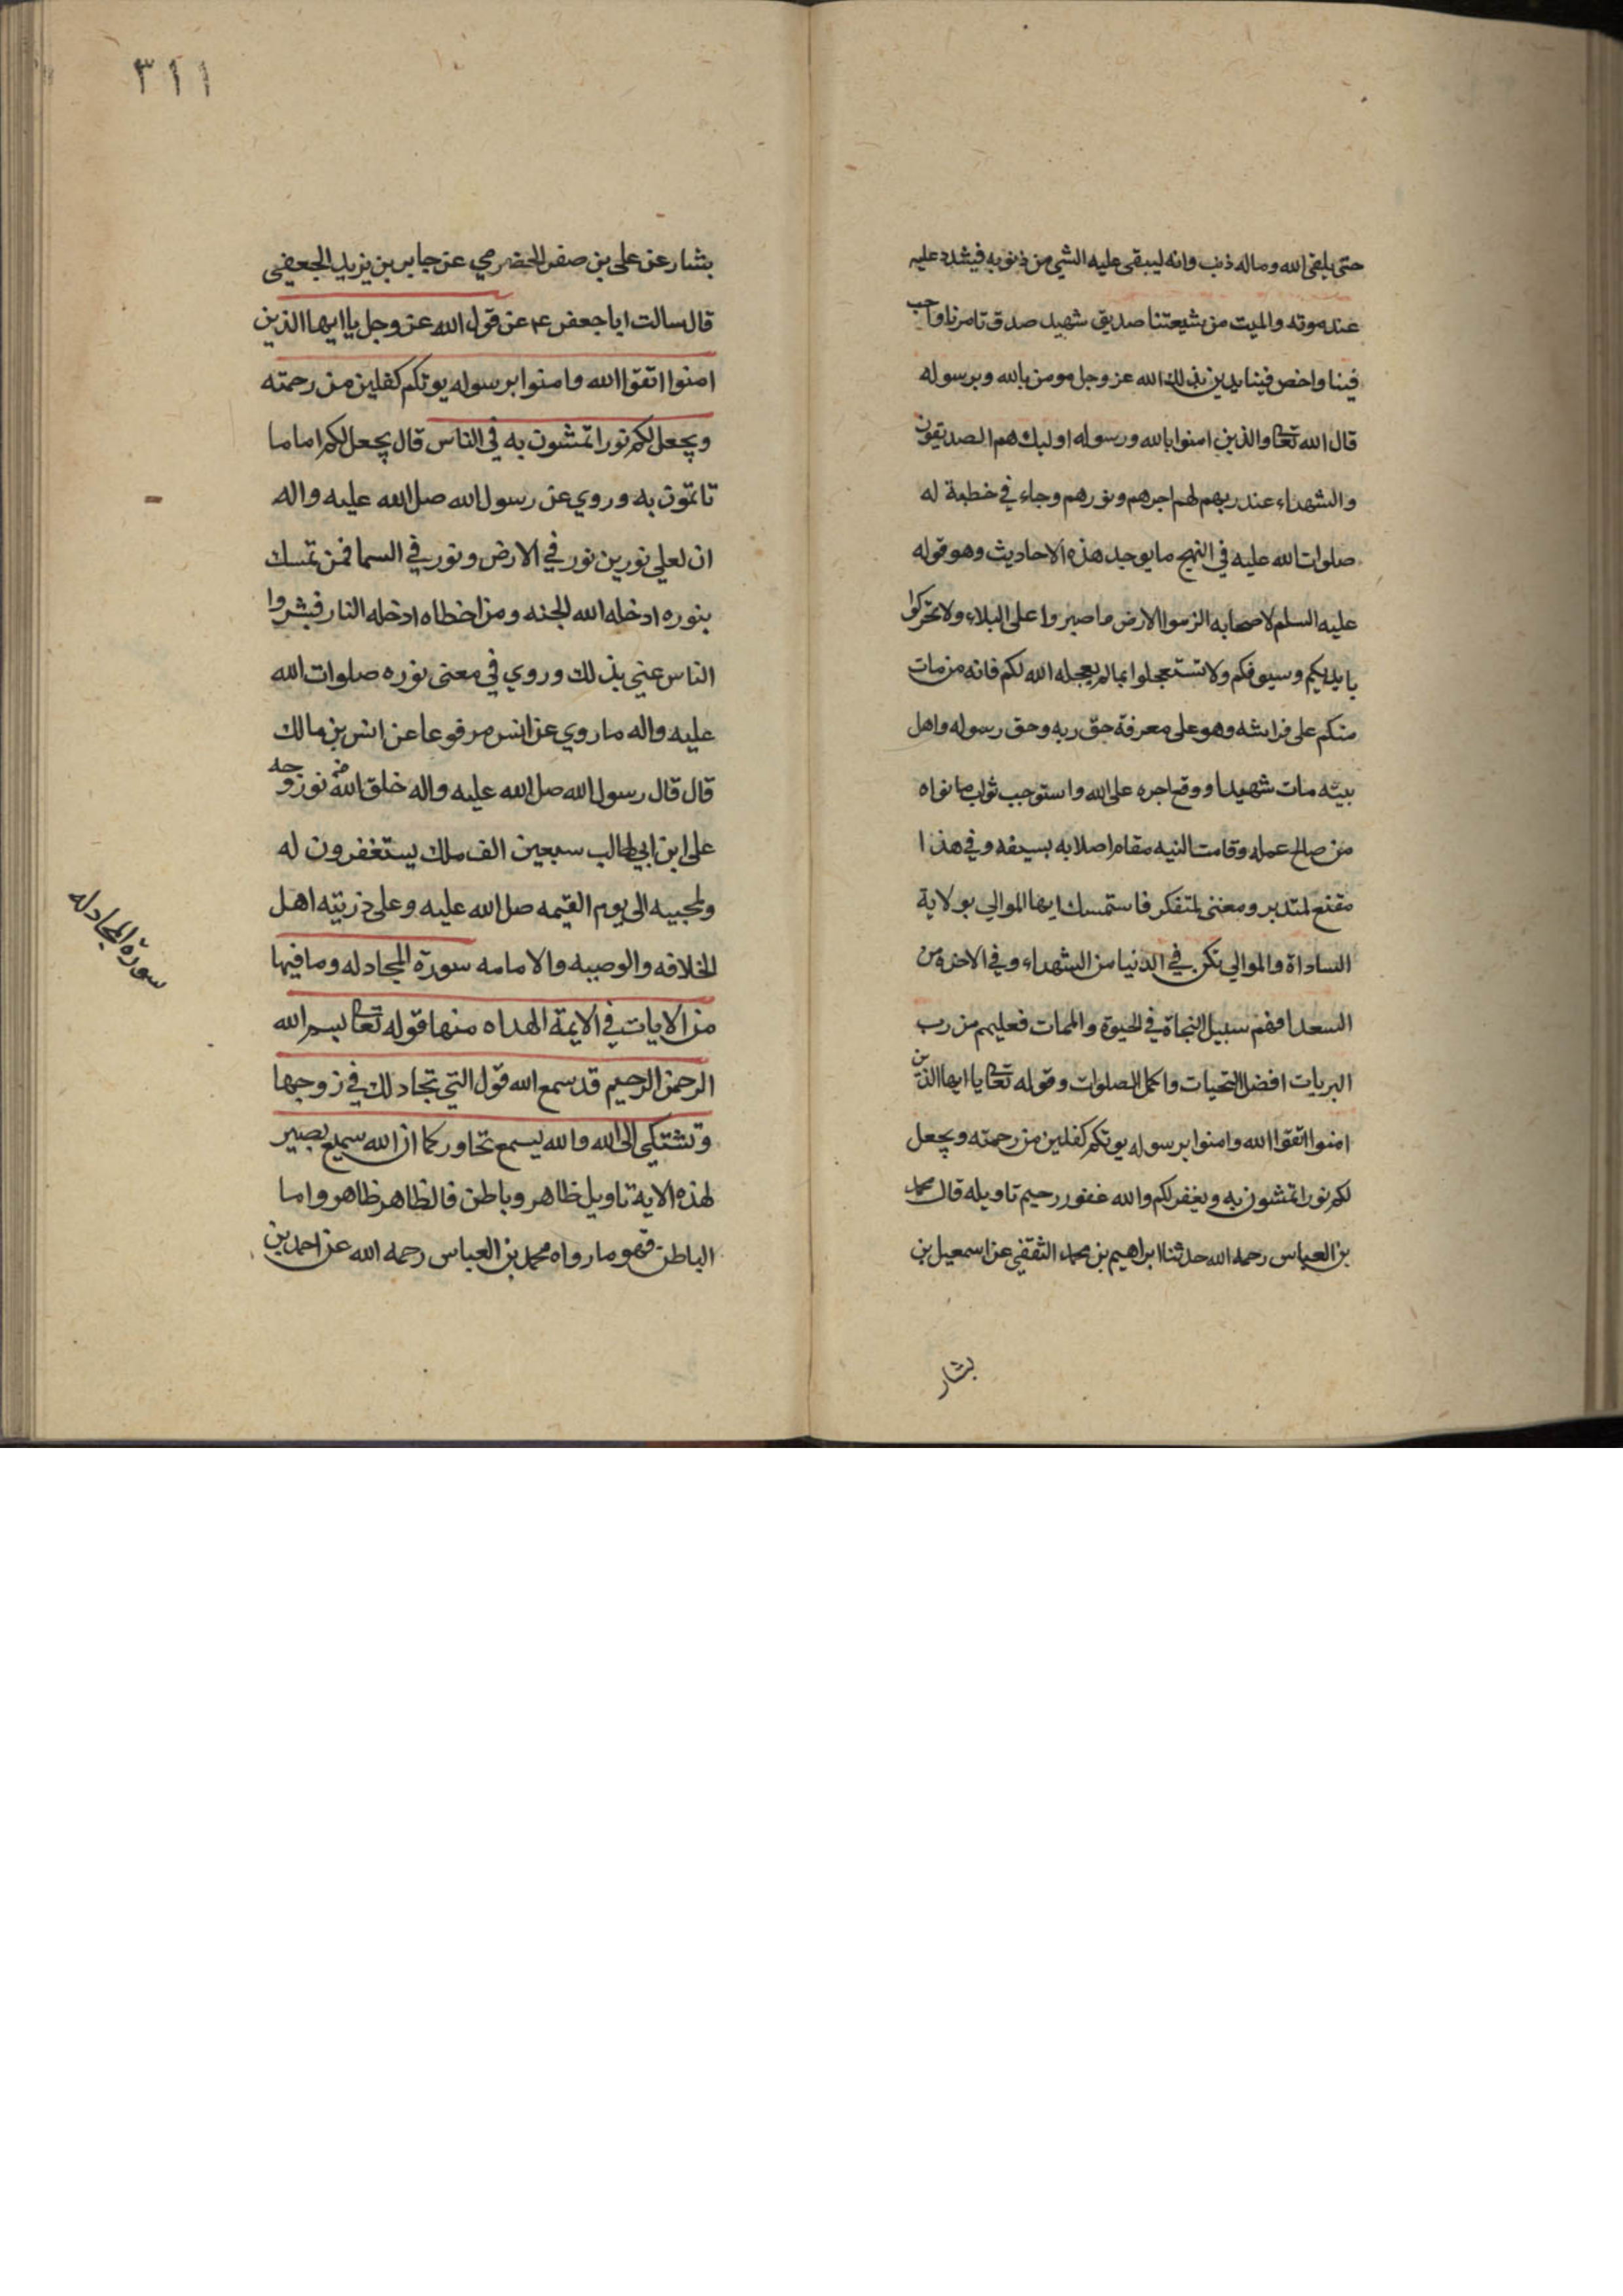 حتى يلقى الله وماله ذنب وانه ليبقى عليه الشي من ذنوبه فيشدد عليه
عند موته والميت من شيعتنا صديق شهيد صدق تامرنا واحب
فينا وابغض فينا يريد بذلك الله عز وجل مومن بالله وبرسوله
قال الله تعالى والذين امنوا بالله ورسوله اوليك هم الصديقون
والشهداء عند ربهم لهم اجرهم ونورهم وجاء في خطبة له
صلوات الله عليه في النهج ما يوجد هذه الاحاديث وهو قوله
عليه السلم لاصحابه الزموا الارض ما صبروا على البلاء ولا تحركوا
بايديكم وسيوفكم ولا تستعجلوا بما لم يعجله الله لكم فانه من مات
منكم على فراشه وهو على معرفة حق ربه وحق رسوله واهل
بيته مات شهيدا ووقع اجره على الله واستوجب ثواب ما نواه
من صالح عمله وقامت النيه مقام اصلابه بسيفه وفي هذا
مقنع لمتدبر ومغنى لمتفكر فاستمسك ايها الموالي بولاية
الساداة والموالي تكن في الدنيا من الشهداء وفي الاخرة من
السعدا فهم سبيل النجاة في الحيوة والممات فعليهم من رب
البريات افضل التحيات واكمل الصلوات وقوله تعالى يا ايها الذين
امنوا اتقوا الله وامنوا برسوله يوتكم كفلين من رحمته ويجعل
لكم نورا تمشون به ويغفر لكم والله غفور رحيم تاويله قال محمد
بن العباس رحمه الله حدثنا ابراهيم بن محمد الثقفي عن اسمعيل بن
بشار
٣١١
بشار عن علي بن صقر الحضرمي عن جابر بن يزيد الجعفي
قال سالت ابا جعفر ع م عن قول الله عز وجل يا ايها الذين
امنوا اتقوا الله وامنوا برسوله يوتكم كفلين من رحمته
ويجعل لكم نورا تمشون به في الناس قال يجعل لكم اماما
تاتمون به وروي عن رسول الله صل الله عليه واله
ان لعلي نورين نور في الارض ونور في السما فمن تمسك
بنوره ادخله الله الجنه ومن اخطاه ادخله النار فبشروا
الناس عني بذلك وروي في معنى نوره صلوات الله
عليه واله ما روي عن انس مرفوعا عن انس بن مالك
قال قال رسول الله صل الله عليه واله خلق الله من نور وجه
على ابن ابي طالب سبعين الف ملك يستغفرون له
ولمحبيه الى يوم القيمه صل الله عليه وعلى ذريته اهل
الخلافه والوصيه والامامه سورة المجادله وما فيها
من الايات في الايمة الهداه منها قوله تعالى بسم الله
الرحمن الرحيم قد سمع الله قول التي تجادلك في زوجها
وتشتكي الى الله والله يسمع تحاوركما ان الله سميع بصير
لهذه الاية تاويل ظاهر وباطن فالظاهر ظاهر واما
الباطن فهو ما رواه محمد بن العباس رحمه الله عن احمد بن
سورة المجادله